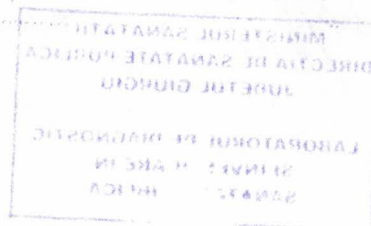 MINISTERUL SANATATII
DIRECTIA DE SANATATE PUBLICA
JUDETUL GIURGIU
LABORATORUL DE DIAGNOSTIC
SI
IN
SANATATE PUBLICA